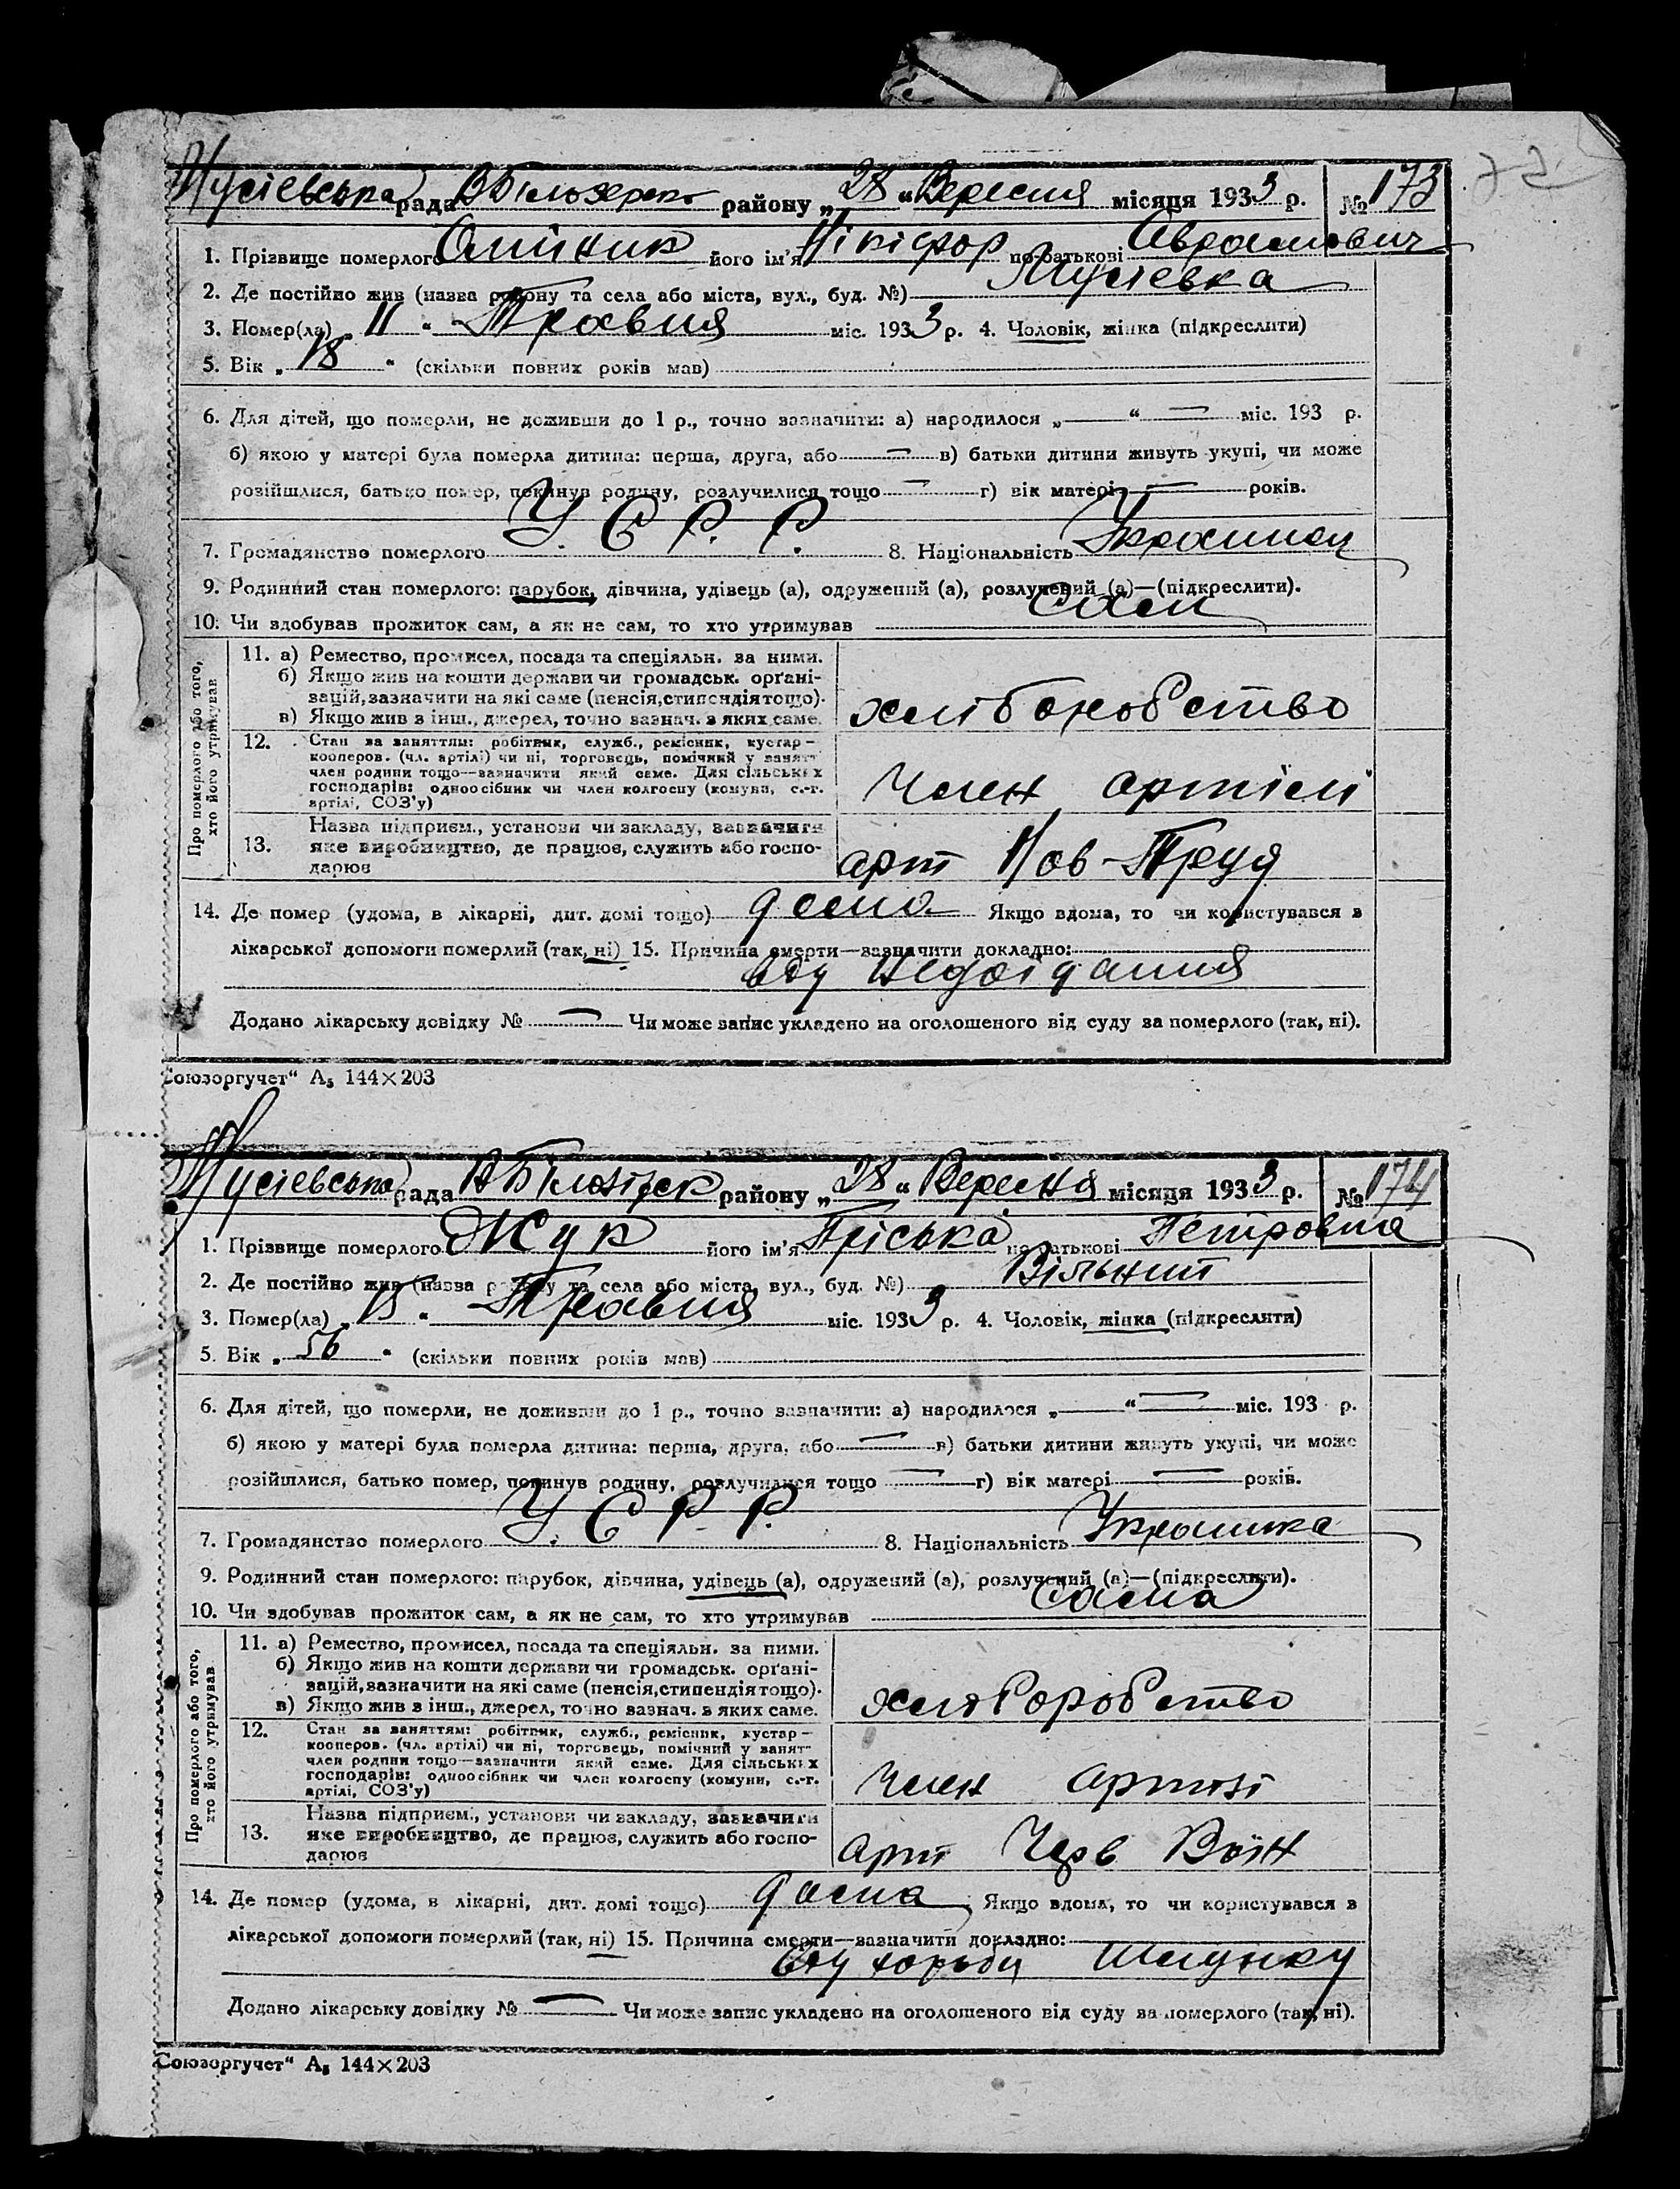 Мусіевська рада ВБілозерск району „28“ Вересня місяця 1933 р. № 173
1. Прізвище померлого Олійник його ім'я Нікіфор по-батькові Аврамович
2. Де постійно жив (назва району та села або міста, вул., буд. №) Мусіевка
3. Помер(ла) „11“ Травня міс. 1933 р. 4. Чоловік, жінка (підкреслити)
5. Вік „18“ (скільки повних років мав)
6. Для дітей, що померли, не доживши до 1 р., точно зазначити: а) народилося „—“ — міс. 193 р.
б) якою у матері була померла дитина: перша, друга, або — в) батьки дитини живуть укупі, чи може
розійшлися, батько помер, покинув родину, розлучилися тощо — г) вік матері — років.
7. Громадянство померлого У.С.Р.Р. 8. Національність
9. Родинний стан померлого: парубок, дівчина, удівець (а), одружений (а), розлучений (а)—(підкреслити).
10. Чи здобував прожиток сам, а як не сам, то хто утримував сам
Про померлого або того,
хто його утримував
11. а) Ремество, промисел, посада та спеціяльн. за ними.
б) Якщо жив на кошти держави чи громадськ. орґані-
зацій, зазначити на які саме (пенсія, стипендія тощо).
в) Якщо жив з інш., джерел, точно зазнач. з яких саме.
12. Стан за заняттям: робітник, служб., ремісник, кустар—
кооперов. (чл. артілі) чи ні, торговець, помічний у занят-
член родини тощо—зазначити який саме. Для сільських
господарів: одноосібник чи член колгоспу (комуни, с.-г.
артілі, СОЗ'у)
Член артілі
13. Назва підприєм., установи чи закладу, зазначити
яке виробництво, де працює, служить або госпо-
дарює
арт Нов-Труд
14. Де помер (удома, в лікарні, дит. домі тощо) дома Якщо вдома, то чи користувався в
лікарської допомоги померлий (так, ні) 15. Причина смерти—зазначити докладно:
від недоїдания
Додано лікарську довідку № — Чи може запис укладено на оголошеного від суду за померлого (так, ні).
Союзоргучет“ А₅ 144×203
Мусіевська рада району „28“ Вересня місяця 1933 р. № 174
1. Прізвище померлого Жук його ім'я Пріська по-батькові Петровна
2. Де постійно жив (назва району та села або міста, вул., буд. №) Вільний
3. Помер(ла) „15“ Травня міс. 1933 р. 4. Чоловік, жінка (підкреслити)
5. Вік „56“ (скільки повних років мав)
6. Для дітей, що померли, не доживши до 1 р., точно зазначити: а) народилося „—“ — міс. 193 р.
б) якою у матері була померла дитина: перша, друга, або — в) батьки дитини живуть укупі, чи може
розійшлися, батько помер, покинув родину, розлучилися тощо — г) вік матері — років.
7. Громадянство померлого У.С.Р.Р. 8. Національність Украинка
9. Родинний стан померлого: парубок, дівчина, удівець (а), одружений (а), розлучений (а)—(підкреслити).
10. Чи здобував прожиток сам, а як не сам, то хто утримував сама
Про померлого або того,
хто його утримував
11. а) Ремество, промисел, посада та спеціяльн. за ними.
б) Якщо жив на кошти держави чи громадськ. орґані-
зацій, зазначити на які саме (пенсія, стипендія тощо).
в) Якщо жив з інш., джерел, точно зазнач. з яких саме.
12. Стан за заняттям: робітник, служб., ремісник, кустар—
кооперов. (чл. артілі) чи ні, торговець, помічний у занят-
член родини тощо—зазначити який саме. Для сільських
господарів: одноосібник чи член колгоспу (комуни, с.-г.
артілі, СОЗ'у)
Член
13. Назва підприєм., установи чи закладу, зазначити
яке виробництво, де працює, служить або госпо-
дарює
арт Черв Воїн
14. Де помер (удома, в лікарні, дит. домі тощо) дома Якщо вдома, то чи користувався в
лікарської допомоги померлий (так, ні) 15. Причина смерти—зазначити докладно:
від хорьби шлунку
Додано лікарську довідку № — Чи може запис укладено на оголошеного від суду за померлого (так, ні).
Союзоргучет“ А₅ 144×203